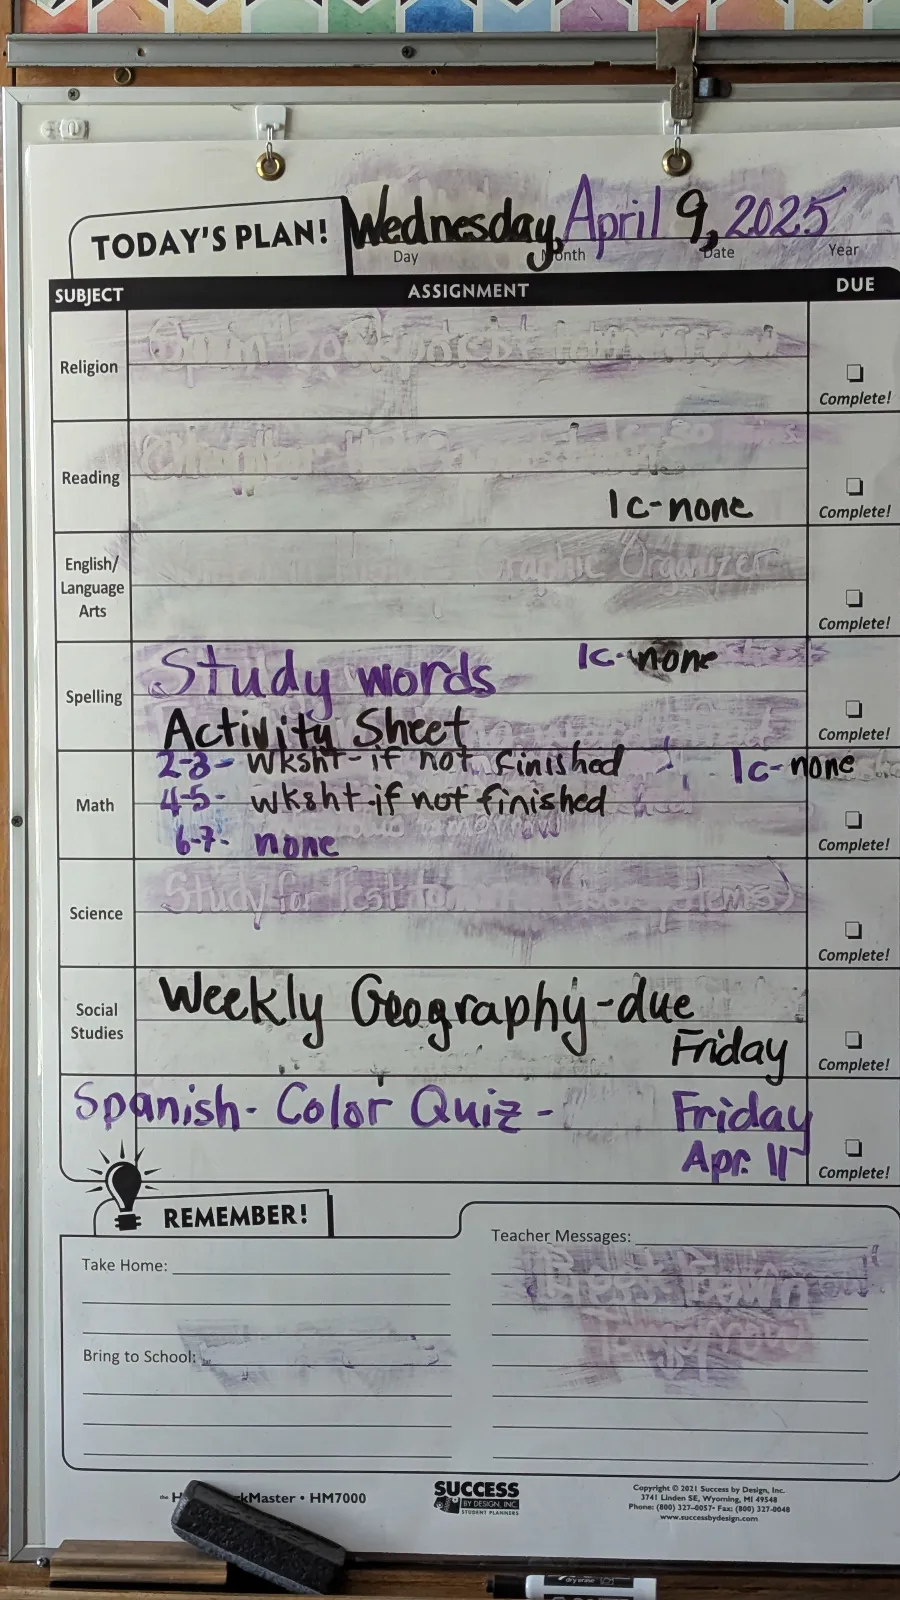 TODAY'S PLAN! Wednesday, April 9, 2025
Day Month Date Year
SUBJECT ASSIGNMENT DUE
Religion
Complete!
Reading
1c-none
Complete!
English/
Language
Arts
Graphic Organizer
Complete!
Spelling
Study words 1c-none
Activity Sheet
Complete!
Math
2-3- wksht-if not finished 1c-none
4-5- wksht-if not finished
6-7- none
Complete!
Science
Study for Test tomorrow
Complete!
Social
Studies
Weekly Geography-due
Friday
Complete!
Spanish- Color Quiz- Friday
Apr. 11
Complete!
REMEMBER!
Take Home:
Bring to School:
Teacher Messages:
Dress Down
Tomorrow
the H kMaster • HM7000
SUCCESS
BY DESIGN, INC.
STUDENT PLANNERS
Copyright © 2021 Success by Design, Inc.
3741 Linden SE, Wyoming, MI 49548
Phone: (800) 327-0057• Fax: (800) 327-0048
www.successbydesign.com
dry erase